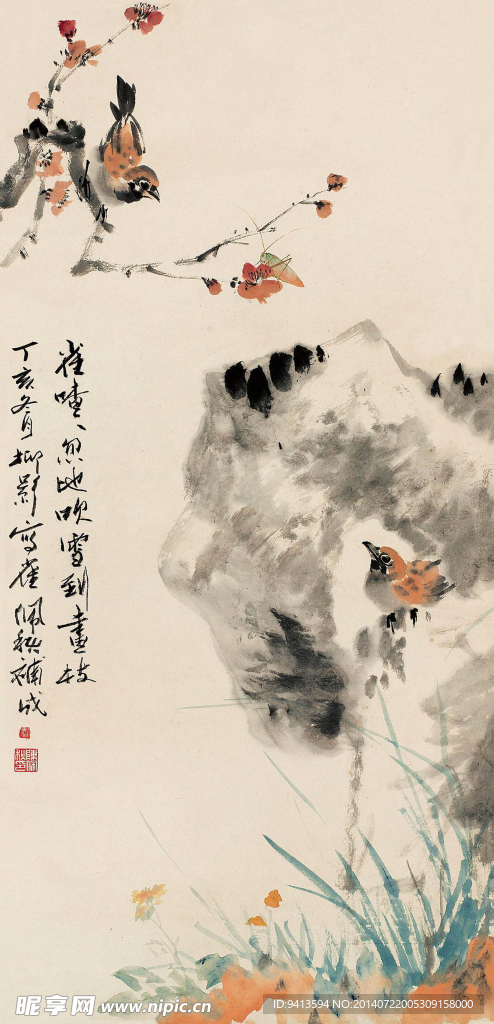 雀喳喳、忽地吹雪到画枝
丁亥冬月柳影写雀佩秋補成
昵享网 www.nipic.cn
ID:9413594 NO:20140722005309158000